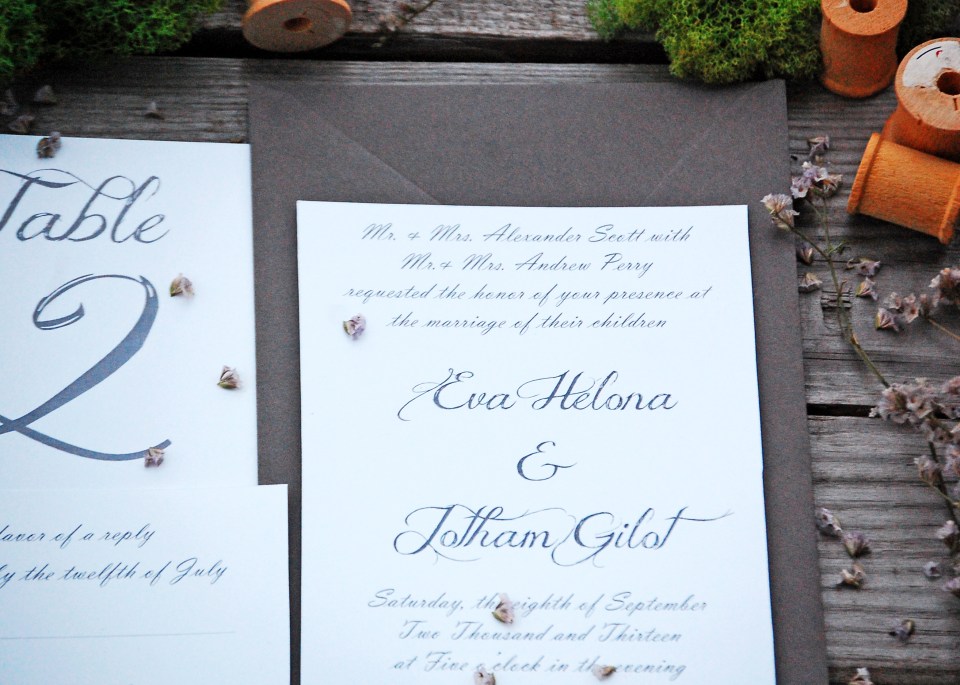 Table
2
Mr. & Mrs. Alexander Scott with
Mr. & Mrs. Andrew Perry
requested the honor of your presence at
the marriage of their children
Eva Helona
&
Jotham Gilot
Saturday, the eighth of September
Two Thousand and Thirteen
at Five o'clock in the evening
of a reply
the twelfth of July